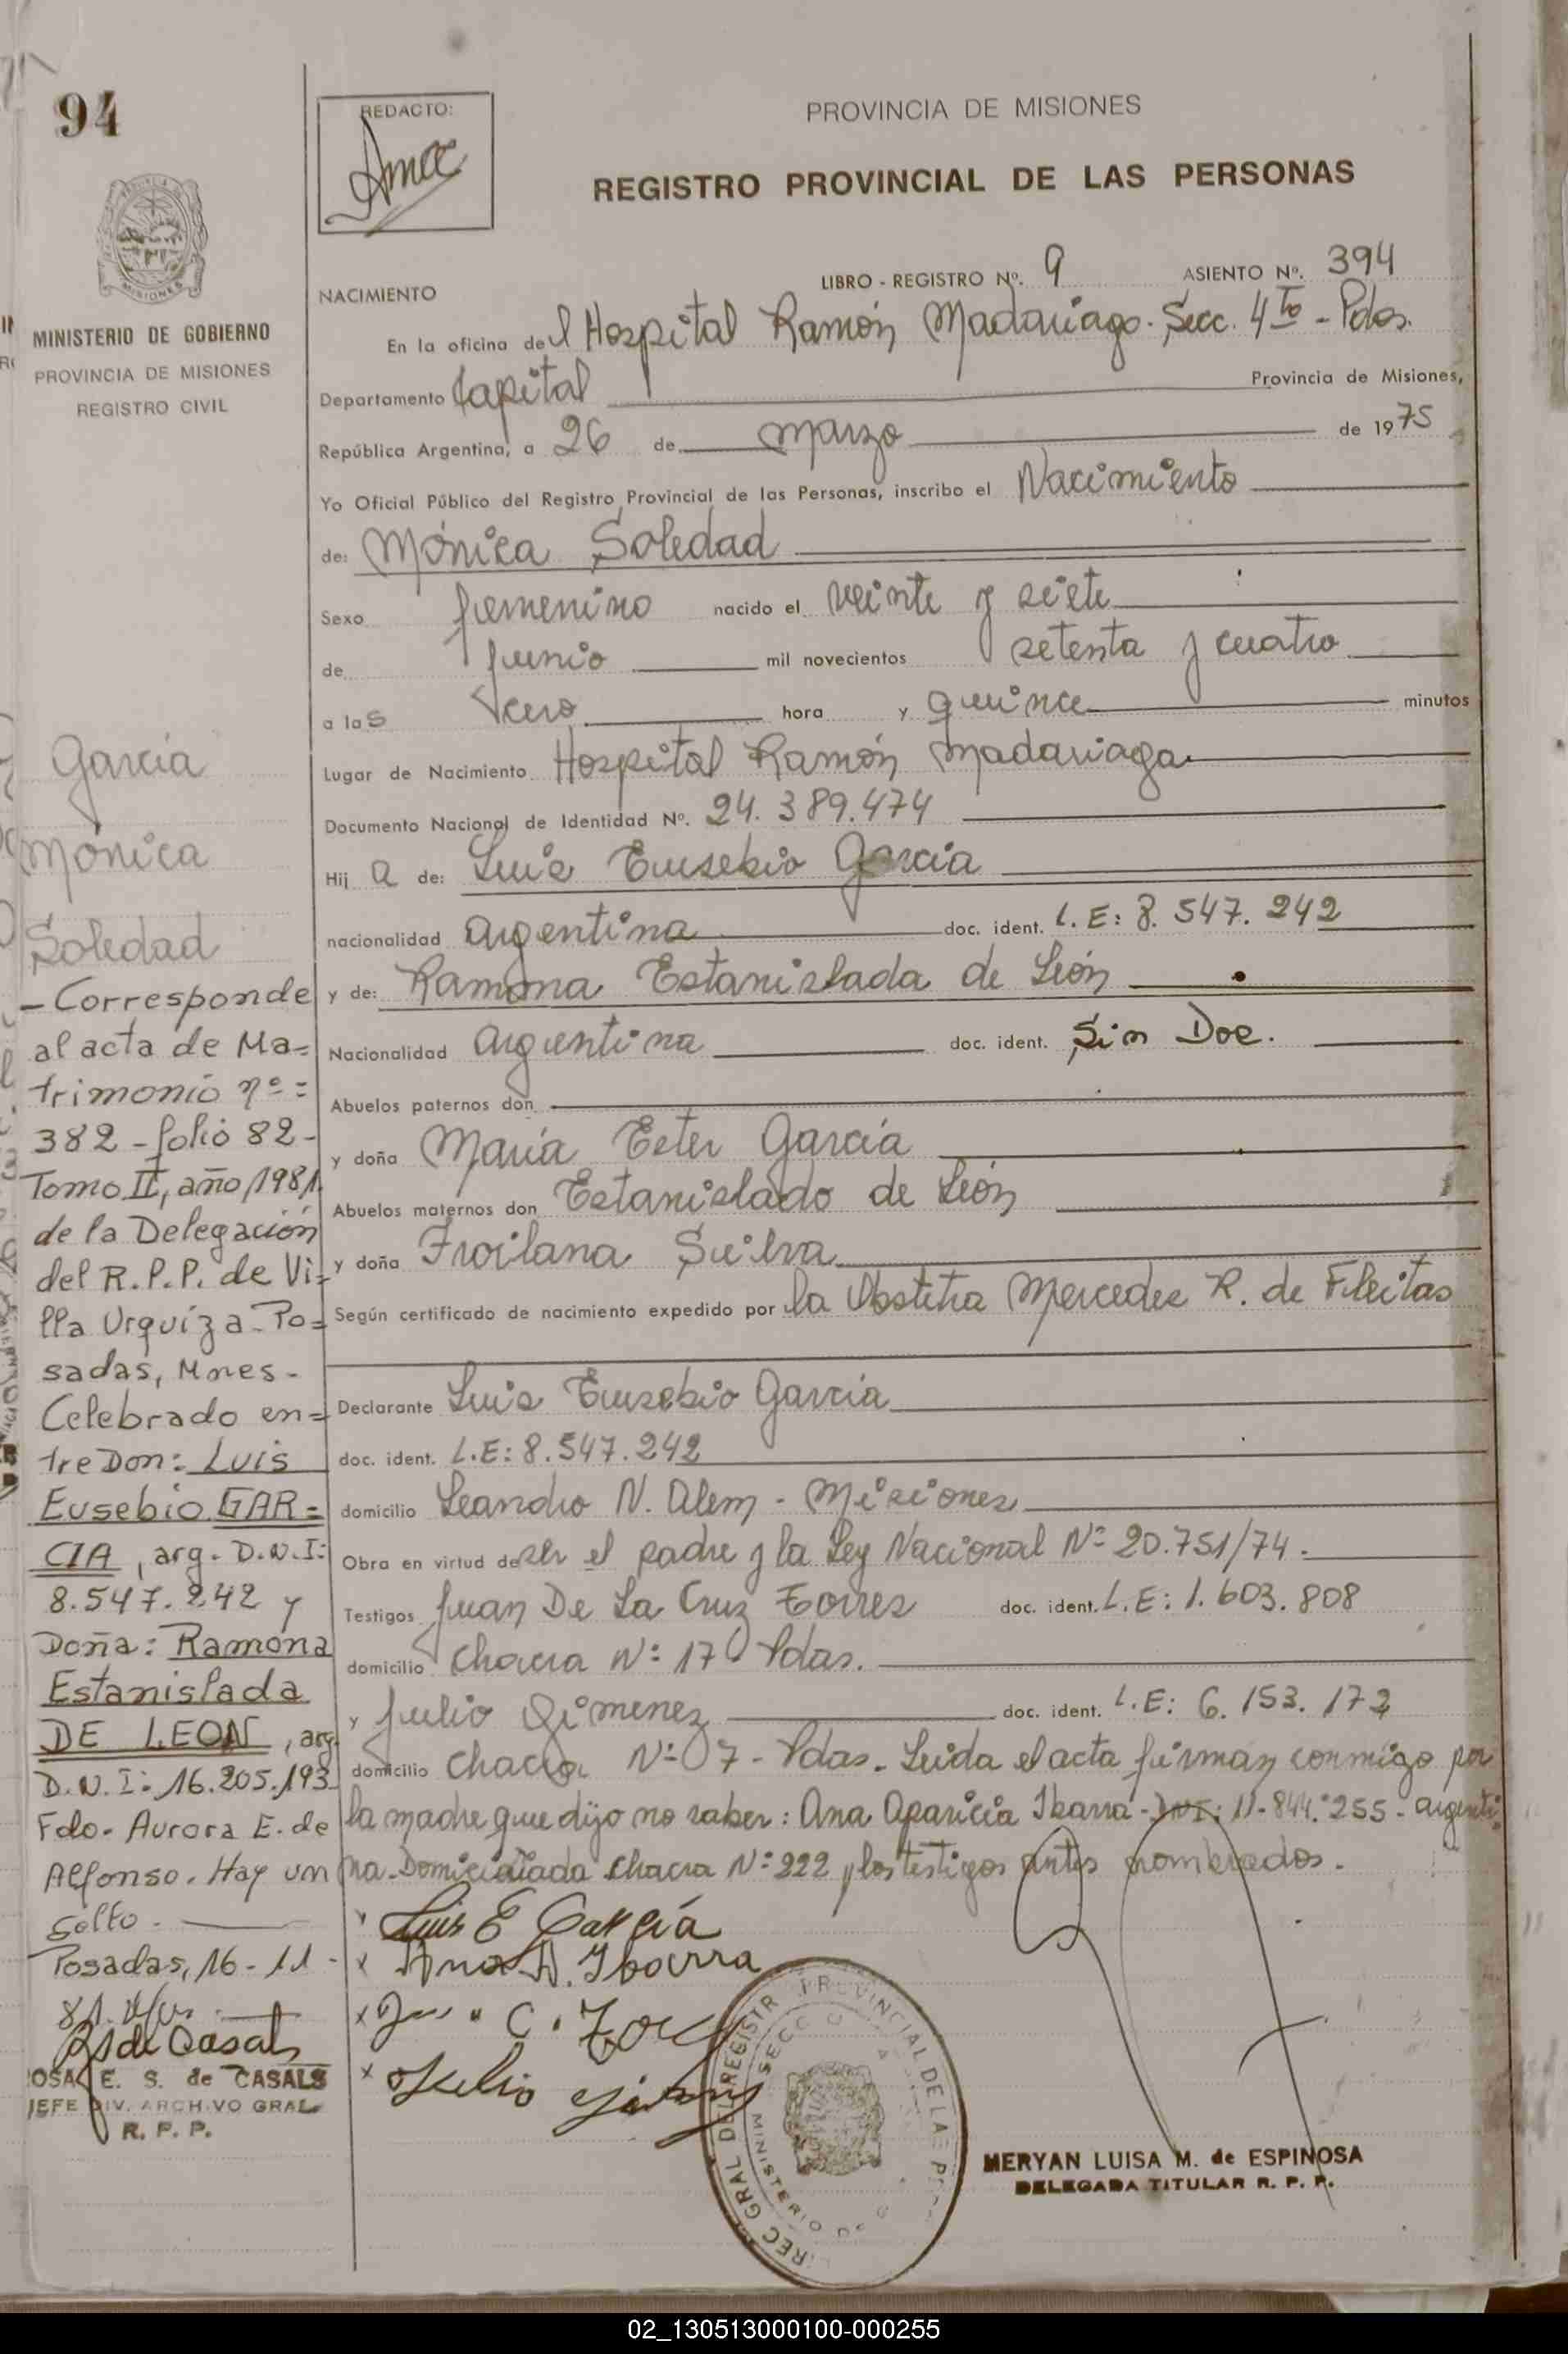 94
MINISTERIO DE GOBIERNO
PROVINCIA DE MISIONES
REGISTRO CIVIL
García
Mónica
Soledad
- Corresponde
al acta de Ma=
trimonio nº=
382 - folio 82 -
Tomo II, año 1981.
de la Delegación
del R.P.P. de Vi=
lla Urquiza - Po=
sadas, Mnes -
Celebrado en=
tre Don: Luis
Eusebio GAR=
CIA, arg. D.N.I:
8.547.242 y
Doña: Ramona
Estanislada
DE LEON, arg.
D.N.I: 16.205.193
Fdo. Aurora E. de
Alfonso. Hay un
Sello.
Posadas, 16-11-
81.
E. S. de CASALS
JEFE DIV. ARCHIVO GRAL
R. P. P.
REDACTO:
PROVINCIA DE MISIONES
REGISTRO PROVINCIAL DE LAS PERSONAS
LIBRO - REGISTRO Nº. 9 ASIENTO Nº. 394
NACIMIENTO
En la oficina del Hospital Ramón Madariaga. Secc. 4ta - Pdas.
Departamento Capital Provincia de Misiones,
República Argentina, a 26 de marzo de 1975
Yo Oficial Público del Registro Provincial de las Personas, inscribo el Nacimiento
de: Mónica Soledad
Sexo femenino nacido el veinte y siete
de junio mil novecientos setenta y cuatro
a las cero hora y quince minutos
Lugar de Nacimiento Hospital Ramón Madariaga
Documento Nacional de Identidad Nº. 24.389.474
Hij a de: Luis Eusebio García
nacionalidad argentina doc. ident. L.E: 8.547.242
y de: Ramona Estanislada de León
Nacionalidad argentina doc. ident. Sin Doc.
Abuelos paternos don
y doña María Ester García
Abuelos maternos don Estanislado de León
y doña Froilana Silva
Según certificado de nacimiento expedido por la Obstetra Mercedes R. de Fleitas
Declarante Luis Eusebio García
doc. ident. L.E: 8.547.242
domicilio Leandro N. Alem - Misiones
Obra en virtud de ser el padre y la Ley Nacional Nº 20.751/74.
Testigos Juan De La Cruz Torres doc. ident. L.E: 1.603.808
domicilio Chacra Nº: 17 Pdas.
y Julio Gimenez doc. ident. L.E: 6.153.172
domicilio Chacra Nº 7 - Pdas. Leida el acta firman conmigo por
la madre que dijo no saber: Ana Aparicia Ibarra - DNI: 11.844.255 - argenti
na. Domiciliada Chacra Nº: 222 y los testigos antes nombrados.
Luis E García
Ana A. Ibarra
MERYAN LUISA M. de ESPINOSA
DELEGADA TITULAR R. P. P.
02_130513000100-000255